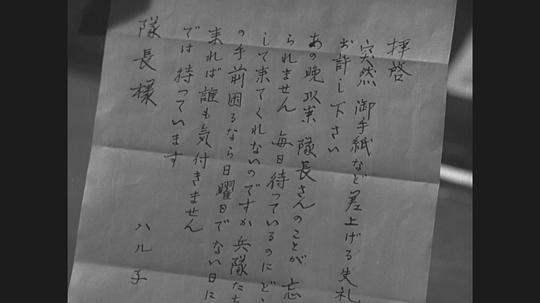 拝啓
突然 御手紙など差上げる失礼
お許し下さい
あの晩以来 隊長さんのことが 忘
られません 毎日待っているのにど
して来てくれないのですか 兵隊たち
の手前困るなら日曜日でない日に
来れば誰も気付きません
では 待っています
ハル子
隊長様